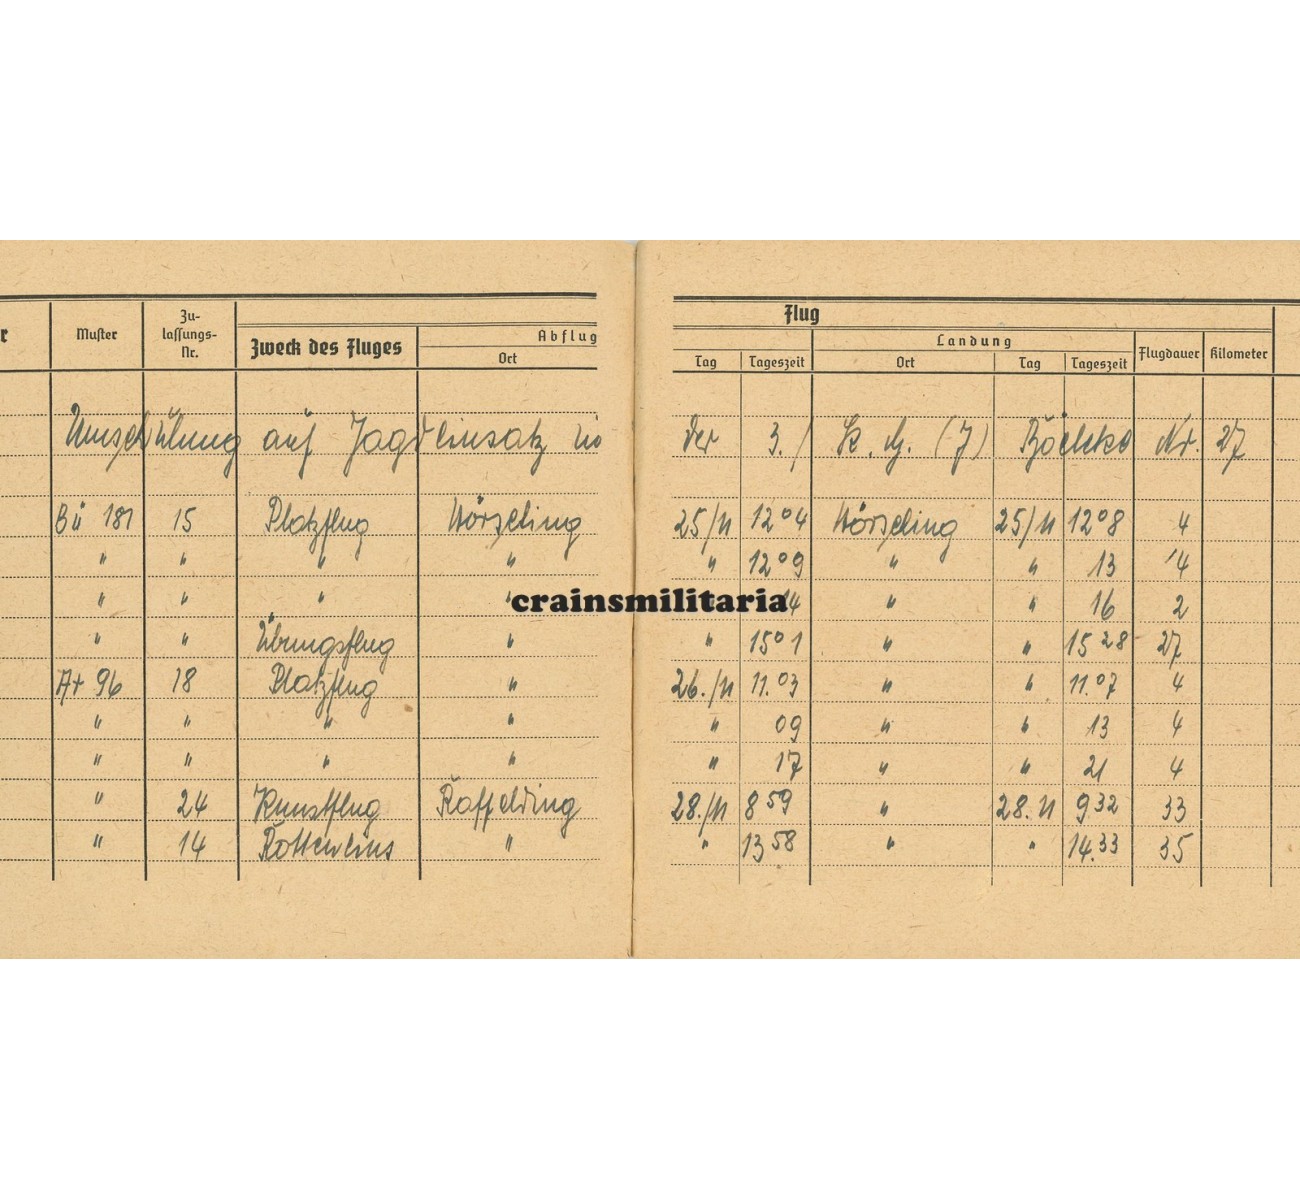 r Muster Zu-lassungs-Nr. Zweck des Fluges Abflug Ort
Flug
Tag Tageszeit Landung Ort Tag Tageszeit Flugdauer Kilometer
Umschulung auf Jagdeinsatz in der 3./ K. G. (J) Bölcke Nr. 27
Bü 181 15 Platzflug Hörsching 25/11 12 04 Hörsching 25/11 12 08 4
" " " " " 12 09 " " 13 4
" " " " 14 " " 16 2
" " Übungsflug " " 15 01 " " 15 28 27
Ar 96 18 Platzflug " 26./11 11.03 " " 11.07 4
" " " " " 09 " " 13 4
" " " " " 17 " " 21 4
" 24 Kunstflug Raffelding 28./11 8 59 " 28.11 9 32 33
" 14 Rotteneins " " 13 58 " " 14.33 35
crainsmilitaria